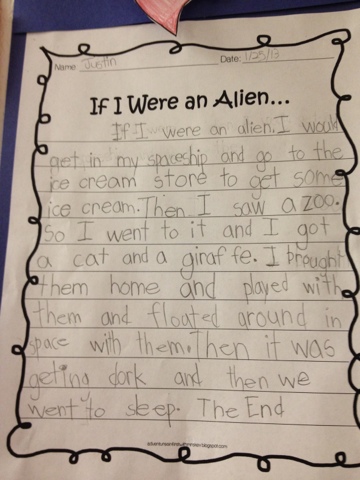 Name: Justin Date: 1/25/13
If I Were an Alien...
If I were an alien, I would
get in my spaceship and go to the
ice cream store to get some
ice cream. Then I saw a zoo.
So I went to it and I got
a cat and a giraffe. I brought
them home and played with
them and floated around in
space with them. Then it was
geting dork and then we
went to sleep. The End